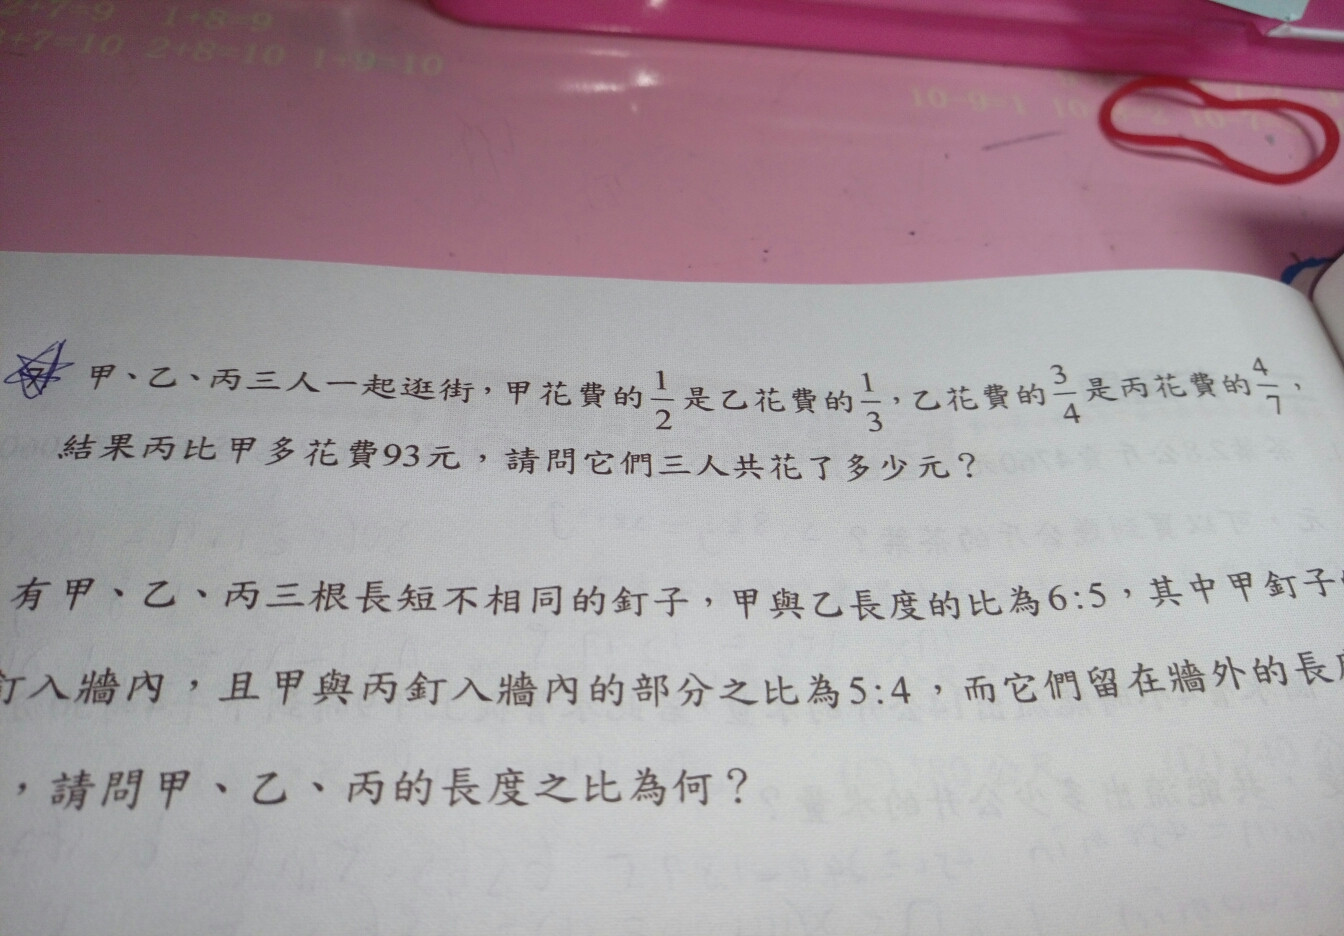 2+7=9 1+8=9
3+7=10 2+8=10 1+9=10
10-9=1
7. 甲、乙、丙三人一起逛街，甲花費的1/2是乙花費的1/3，乙花費的3/4是丙花費的4/7，
結果丙比甲多花費93元，請問它們三人共花了多少元？
有甲、乙、丙三根長短不相同的釘子，甲與乙長度的比為6:5，其中甲釘子
釘入牆內，且甲與丙釘入牆內的部分之比為5:4，而它們留在牆外的長度
，請問甲、乙、丙的長度之比為何？